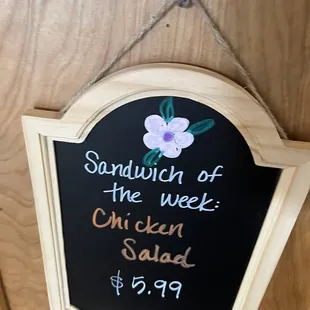 Sandwich of
the week:
Chicken
Salad
$5.99